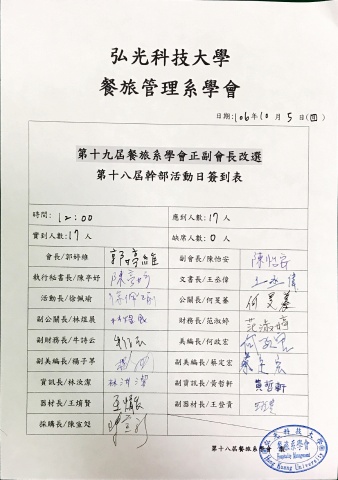 弘光科技大學
餐旅管理系學會
日期:106年10月5日(四)
第十九屆餐旅系學會正副會長改選
第十八屆幹部活動日簽到表
時間: 12:00 應到人數:17人
實到人數:17人 缺席人數:0人
會長/郭婷維 郭婷維 副會長/陳怡安 陳怡安
執行秘書長/陳亭妤 陳亭妤 文書長/王丞偉 王丞偉
活動長/徐佩瑜 公關長/何旻蓁 何旻蓁
副公關長/林煜展 林煜展 財務長/范淑婷 范淑婷
副財務長/牛詩云 美編長/何政宏 何政宏
副美編長/楊子萃 副美編長/蔡定宏 蔡定宏
資訊長/林汝潔 林汝潔 副資訊長/黃哲軒 黃哲軒
器材長/王煒賢 副器材長/王登貴
採購長/陳宣彣
第十八屆餐旅系學會
弘光科技大學
餐旅系學會
Hospitality Management
Hung Kuang University